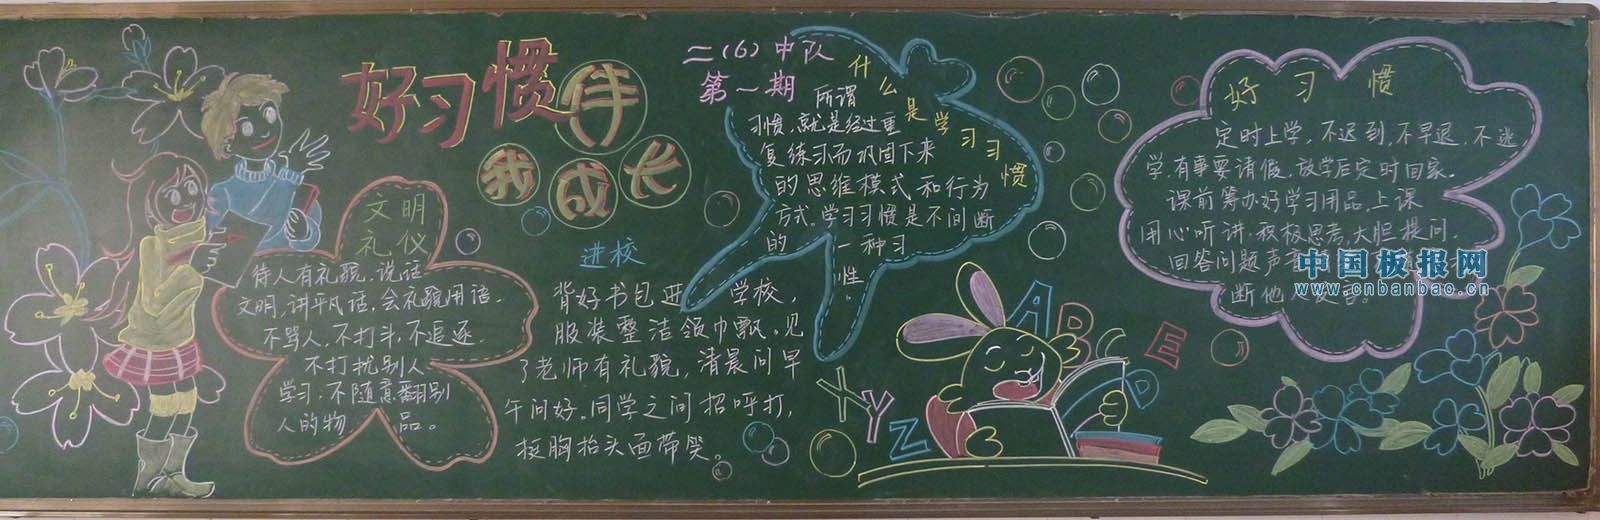 好习惯伴
我成长
二(6)中队
第一期
文明
礼仪
待人有礼貌,说话
文明,讲平凡话,会礼貌用语.
不骂人,不打斗,不追逐.
不打扰别人
学习,不随意翻别
人的物品。
进校
背好书包进学校,
服装整洁领巾飘。见
了老师有礼貌,清晨问早
午问好。同学之间招呼打,
挺胸抬头面带笑。
什么是学习习惯
所谓
习惯,就是经过重
复练习而巩固下来
的思维模式和行为
方式。学习习惯是不间断
的一种习
性。
X Y Z
A B C D E
好习惯
定时上学,不迟到,不早退,不逃
学,有事要请假,放学后定时回家.
课前筹办好学习用品,上课
用心听讲,积极思考,大胆提问.
回答问题声
断他人发言。
中国板报网
www.cnbanbao.cn